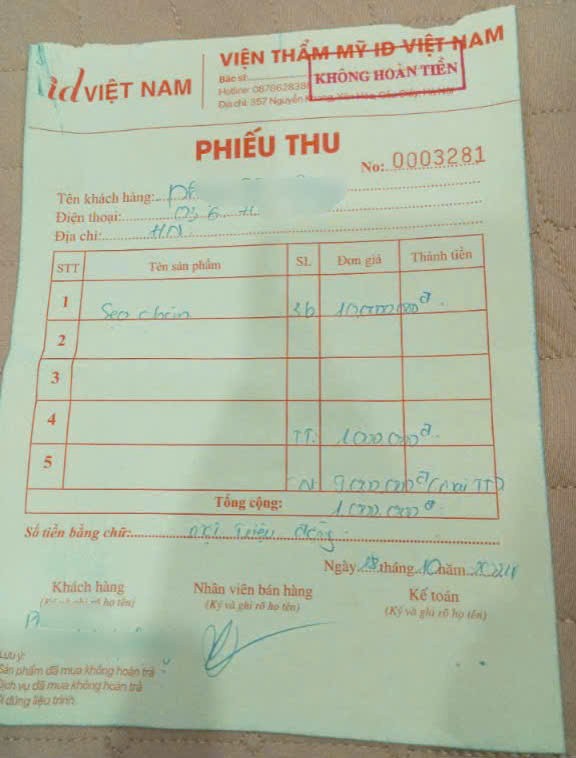 id VIỆT NAM
VIỆN THẨM MỸ ID VIỆT NAM
Bác sĩ:
Hotline:
KHÔNG HOÀN TIỀN
Địa chỉ: 357 Nguyễn Khang, Yên Hòa, Cầu Giấy, Hà Nội
PHIẾU THU
No: 0003281
Tên khách hàng:
Điện thoại:
Địa chỉ: HN
STT Tên sản phẩm SL Đơn giá Thành tiền
1 Sẹo chân 3b 10.000.000đ
2
3
4 TT: 1.000.000đ
5 CN 9.000.000đ
Tổng cộng: 1.000.000đ
Số tiền bằng chữ: một triệu đồng
Ngày 18 tháng 10 năm
Khách hàng Nhân viên bán hàng Kế toán
(Ký và ghi rõ họ tên) (Ký và ghi rõ họ tên) (Ký và ghi rõ họ tên)
Lưu ý:
Sản phẩm đã mua không hoàn trả
Dịch vụ đã mua không hoàn trả
đúng liệu trình